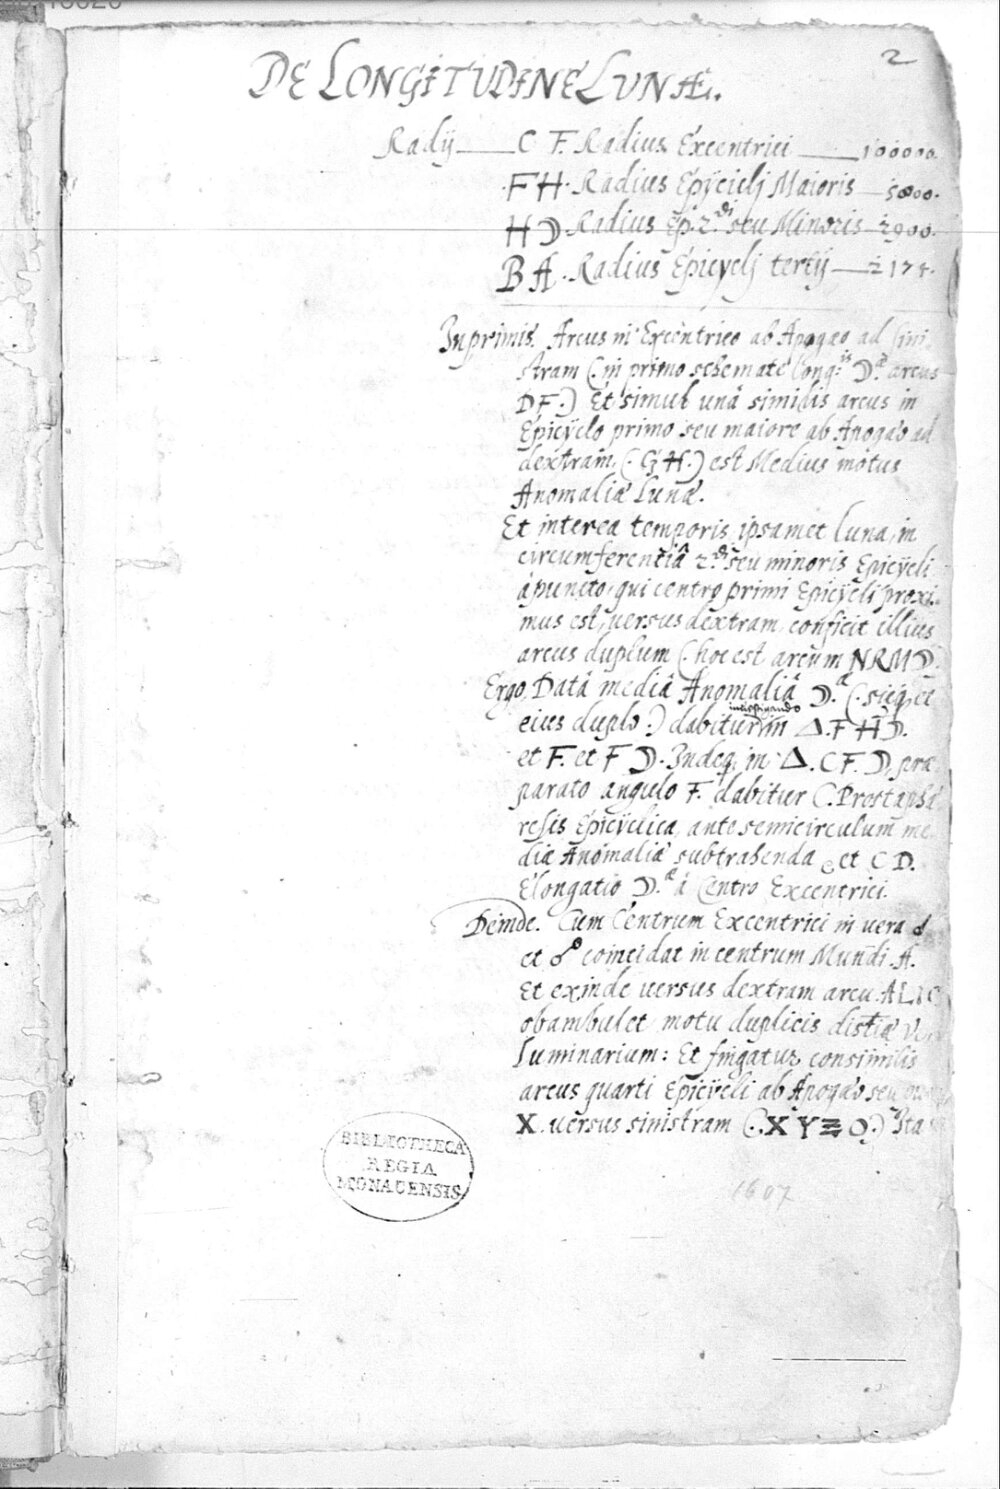 2
DE LONGITUDINE LUNÆ.
Radij — C F. Radius Excentrici — 100000.
·FH· Radius Epÿciclj Maioris — 5800.
H☽. Radius Ep. 2.di seu Minoris — 2900.
BA. Radius Epicyclj tertij — 2174.
Inprimis. Arcus in Excentrico ab Apogæo ad sini-
stram (: in primo schemate Longis ☽æ. arcus
DF.) Et simul unà similis arcus in
Epicÿclo primo seu maiore ab Apogæo ad
dextram, (. GH.) est Medius motus
Anomaliæ Lunæ.
Et interea temporis ipsamet Luna, in
circumferentiâ 2.di seu minoris Epicÿcli
à puncto, qui centro primi Epicÿclj proxi-
mus est, versus dextram, conficit illius
arcus duplum (. hoc est arcum NRM☽.
Ergo Datâ mediâ Anomaliâ ☽.æ (. sicq, et
eius duplo :) dabitur in investigando Δ.FH☽.
et F. et F☽. Indeq, in Δ.CF.☽, præ-
parato angulo F. dabitur C. Prostaphæ-
resis Epicÿclica, ante semicirculum me-
diæ Anomaliæ subtrahenda, et CD.
Elongatio ☽.æ à Centro Excentrici.
Deinde. Cum Centrum Excentrici in vera ☌
et ☍ coincidat in centrum Mundi. A.
Et exinde versus dextram arcu ALIC
obambulet motu duplicis distiæ
Luminarium: Et fingatur consimilis
arcus quarti Epicÿcli ab Apogæo seu
X. versus sinistram (:.XY≡O:) Ita
BIBLIOTHECA
REGIA
MONACENSIS.
1607